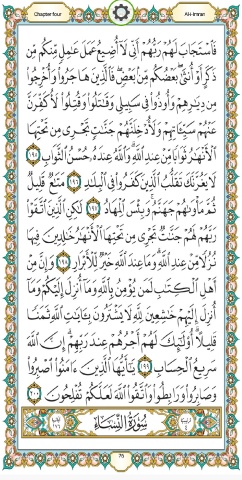 Chapter four
Al-Imran
فَاسْتَجَابَ لَهُمْ رَبُّهُمْ أَنِّي لَا أُضِيعُ عَمَلَ عَامِلٍ مِنْكُمْ مِنْ
ذَكَرٍ أَوْ أُنْثَىٰ بَعْضُكُمْ مِنْ بَعْضٍ فَالَّذِينَ هَاجَرُوا وَأُخْرِجُوا
مِنْ دِيَارِهِمْ وَأُوذُوا فِي سَبِيلِي وَقَاتَلُوا وَقُتِلُوا لَأُكَفِّرَنَّ
عَنْهُمْ سَيِّئَاتِهِمْ وَلَأُدْخِلَنَّهُمْ جَنَّاتٍ تَجْرِي مِنْ تَحْتِهَا
الْأَنْهَارُ ثَوَابًا مِنْ عِنْدِ اللَّهِ وَاللَّهُ عِنْدَهُ حُسْنُ الثَّوَابِ ١٩٥
لَا يَغُرَّنَّكَ تَقَلُّبُ الَّذِينَ كَفَرُوا فِي الْبِلَادِ ١٩٦ مَتَاعٌ قَلِيلٌ
ثُمَّ مَأْوَاهُمْ جَهَنَّمُ وَبِئْسَ الْمِهَادُ ١٩٧ لَٰكِنِ الَّذِينَ اتَّقَوْا
رَبَّهُمْ لَهُمْ جَنَّاتٌ تَجْرِي مِنْ تَحْتِهَا الْأَنْهَارُ خَالِدِينَ فِيهَا
نُزُلًا مِنْ عِنْدِ اللَّهِ وَمَا عِنْدَ اللَّهِ خَيْرٌ لِلْأَبْرَارِ ١٩٨ وَإِنَّ مِنْ
أَهْلِ الْكِتَابِ لَمَنْ يُؤْمِنُ بِاللَّهِ وَمَا أُنْزِلَ إِلَيْكُمْ وَمَا
أُنْزِلَ إِلَيْهِمْ خَاشِعِينَ لِلَّهِ لَا يَشْتَرُونَ بِآيَاتِ اللَّهِ ثَمَنًا
قَلِيلًا أُولَٰئِكَ لَهُمْ أَجْرُهُمْ عِنْدَ رَبِّهِمْ إِنَّ اللَّهَ
سَرِيعُ الْحِسَابِ ١٩٩ يَا أَيُّهَا الَّذِينَ آمَنُوا اصْبِرُوا
وَصَابِرُوا وَرَابِطُوا وَاتَّقُوا اللَّهَ لَعَلَّكُمْ تُفْلِحُونَ ٢٠٠
سُورَةُ النِّسَاءِ
76